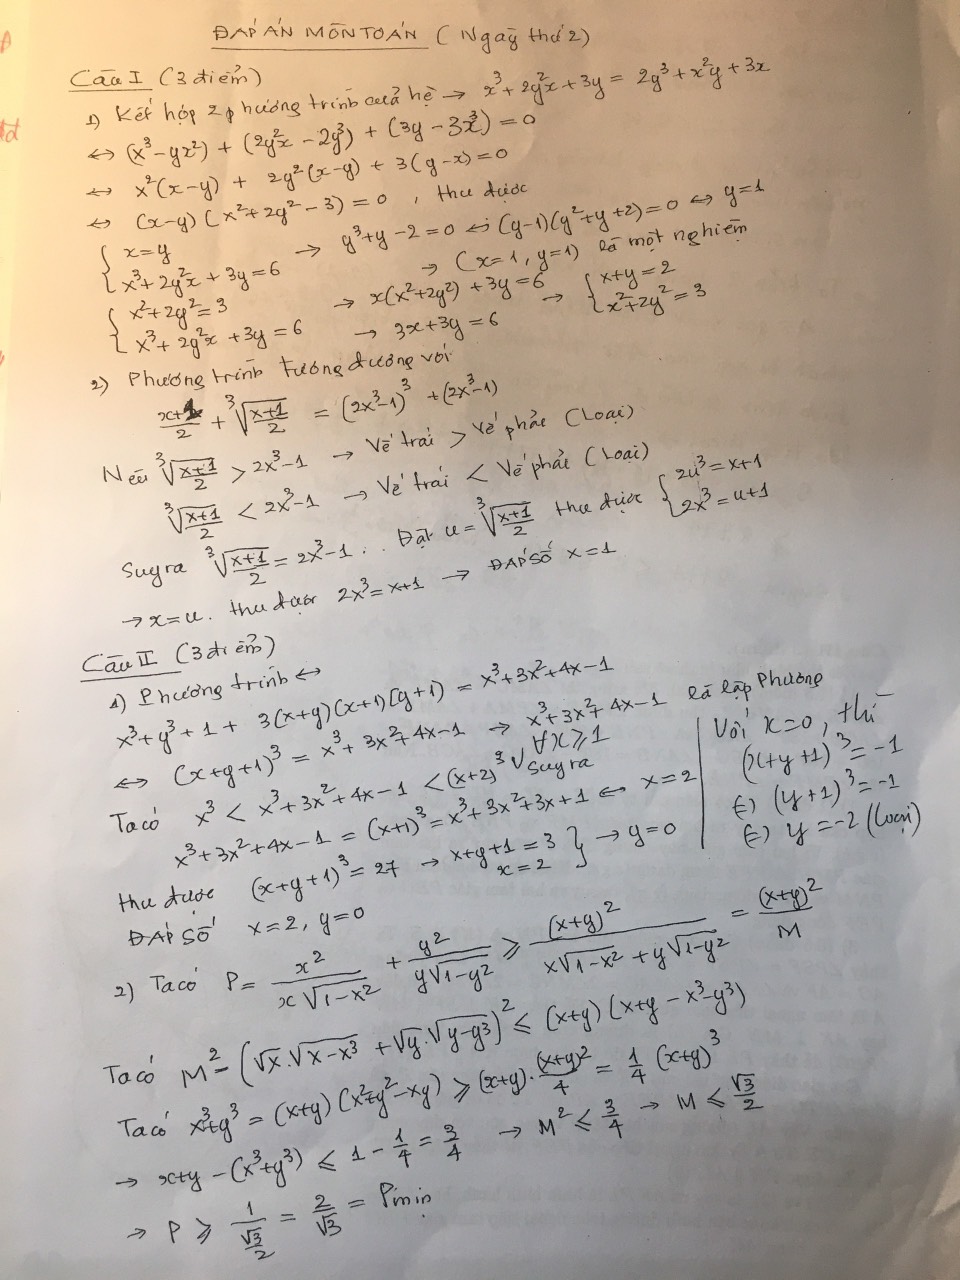 ĐÁP ÁN MÔN TOÁN ( Ngày thứ 2)
Câu I (3 điểm)
1) Kết hợp 2 phương trình của hệ → x³ + 2y²x + 3y = 2y³ + x²y + 3x
↔ (x³ - yx²) + (2y²x - 2y³) + (3y - 3x) = 0
↔ x²(x-y) + 2y²(x-y) + 3(y-x) = 0
↔ (x-y)(x² + 2y² - 3) = 0 , thu được
{ x = y
x³ + 2y²x + 3y = 6 → y³ + y - 2 = 0 ↔ (y-1)(y² + y + 2) = 0 ↔ y = 1
→ (x=1, y=1) là một nghiệm
{ x² + 2y² = 3
x³ + 2y²x + 3y = 6 → x(x² + 2y²) + 3y = 6 → 3x + 3y = 6 → { x + y = 2
x² + 2y² = 3
2) Phương trình tương đương với
(x+1)/2 + ∛((x+1)/2) = (2x³-1)³ + (2x³-1)
Nếu ∛((x+1)/2) > 2x³-1 → Vế trái > Vế phải (Loại)
∛((x+1)/2) < 2x³-1 → Vế trái < Vế phải (Loại)
Suy ra ∛((x+1)/2) = 2x³-1. Đặt u = ∛((x+1)/2) thu được { 2u³ = x+1
2x³ = u+1
→ x = u. thu được 2x³ = x+1 → ĐÁP SỐ x = 1
Câu II (3 điểm)
1) Phương trình ↔
x³ + y³ + 1 + 3(x+y)(x+1)(y+1) = x³ + 3x² + 4x - 1
↔ (x+y+1)³ = x³ + 3x² + 4x - 1 → x³ + 3x² + 4x - 1 là lập phương
Ta có x³ < x³ + 3x² + 4x - 1 < (x+2)³ ∀x ≥ 1 Suy ra
x³ + 3x² + 4x - 1 = (x+1)³ = x³ + 3x² + 3x + 1 ↔ x = 2
thu được (x+y+1)³ = 27 → x+y+1 = 3
x = 2 } → y = 0
ĐÁP SỐ x = 2, y = 0
Với x = 0, thì
(x+y+1)³ = -1
⇔ (y+1)³ = -1
⇔ y = -2 (loại)
2) Ta có P = x²/(x√(1-x²)) + y²/(y√(1-y²)) ≥ (x+y)²/(x√(1-x²) + y√(1-y²)) = (x+y)²/M
Ta có M² = (√x.√(x-x³) + √y.√(y-y³))² ≤ (x+y)(x+y - x³ - y³)
Ta có x³ + y³ = (x+y)(x² + y² - xy) ≥ (x+y).(x+y)²/4 = 1/4 (x+y)³
→ x+y - (x³ + y³) ≤ 1 - 1/4 = 3/4 → M² ≤ 3/4 → M ≤ √3/2
→ P ≥ 1/(√3/2) = 2/√3 = Pmin